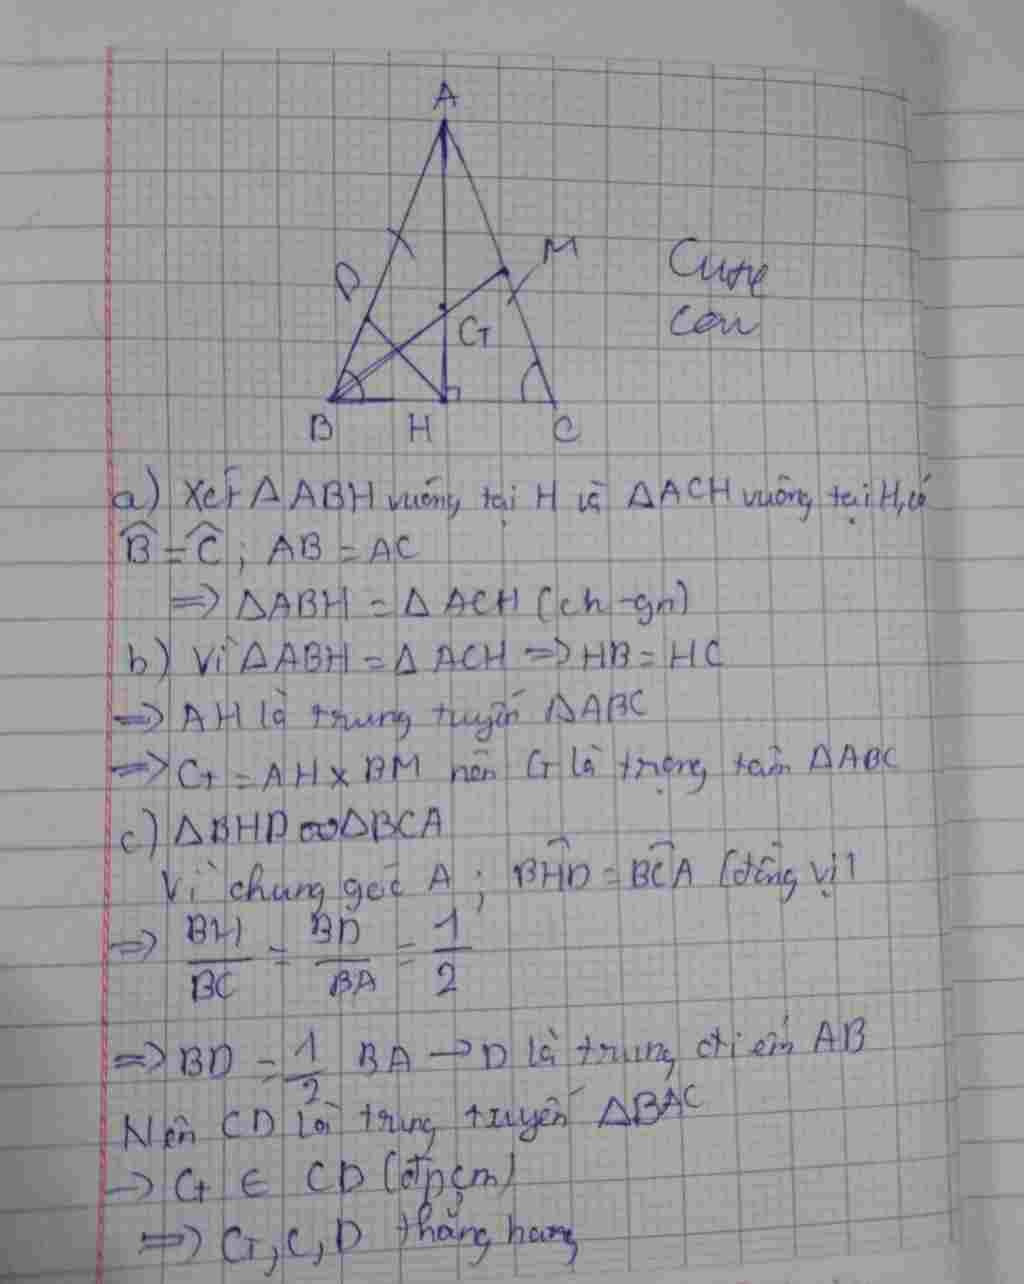 A
D
M
G
B
H
C
Cute
con
a) Xét ΔABH vuông tại H và ΔACH vuông tại H, có
B̂ = Ĉ ; AB = AC
=> ΔABH = ΔACH (ch - gn)
b) Vì ΔABH = ΔACH => HB = HC
=> AH là trung tuyến ΔABC
=> G = AH x BM nên G là trọng tâm ΔABC
c) ΔBHD ∞ ΔBCA
Vì chung góc A ; BĤD = BĈA (đồng vị)
=> BH/BC = BD/BA = 1/2
=> BD = 1/2 BA -> D là trung điểm AB
Nên CD là trung tuyến ΔBAC
-> G ∈ CD (đpcm)
=> G, C, D thẳng hang